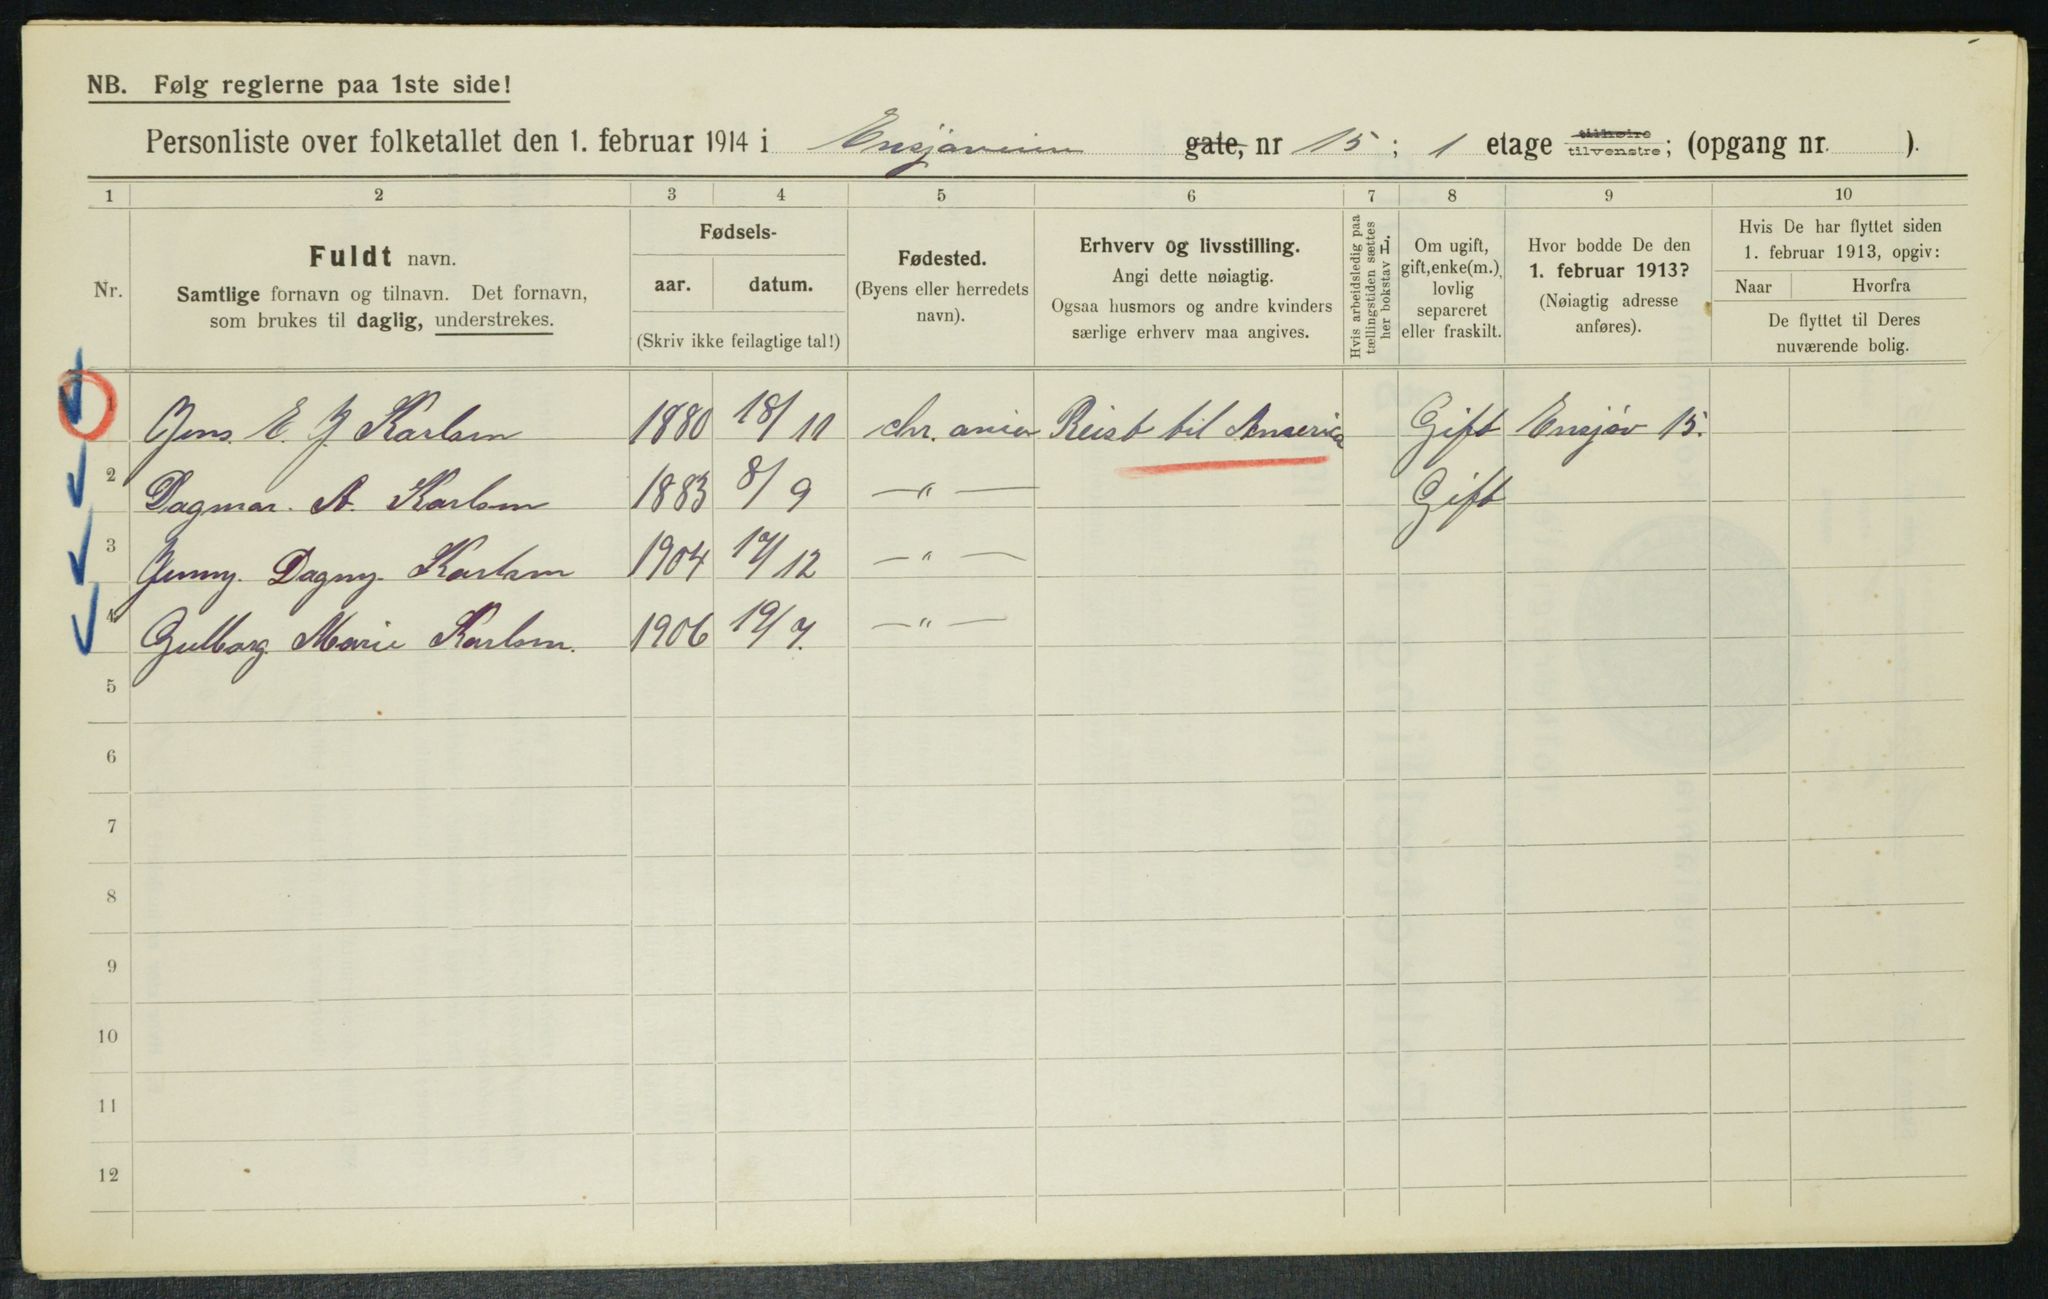 NB. Følg reglerne paa 1ste side!
Personliste over folketallet den 1. februar 1914 i Ensjøveien gate, nr 15 ; 1 etage tilhøire tilvenstre; (opgang nr. ).
1 2 3 4 5 6 7 8 9 10
Nr.
Fuldt navn.
Samtlige fornavn og tilnavn. Det fornavn,
som brukes til daglig, understrekes.
Fødsels-
aar. datum.
(Skriv ikke feilagtige tal!)
Fødested.
(Byens eller herredets
navn).
Erhverv og livsstilling.
Angi dette nøiagtig.
Ogsaa husmors og andre kvinders
særlige erhverv maa angives.
Hvis arbeidsledig paa
tællingstiden sættes
her bokstav L.
Om ugift,
gift, enke(m.),
lovlig
separeret
eller fraskilt.
Hvor bodde De den
1. februar 1913?
(Nøiagtig adresse
anføres).
Hvis De har flyttet siden
1. februar 1913, opgiv:
Naar Hvorfra
De flyttet til Deres
nuværende bolig.
1 Jens E. J Karlsen 1880 18/11 chr.ania Reist til America Gift Ensjøv 15.
2 Dagmar. A. Karlsen 1883 8/9 —"— Gift
3 Jenny. Dagny. Karlsen 1904 17/12 —"—
4 Gulborg Marie Karlsen. 1906 19/7. —"—
5
6
7
8
9
10
11
12